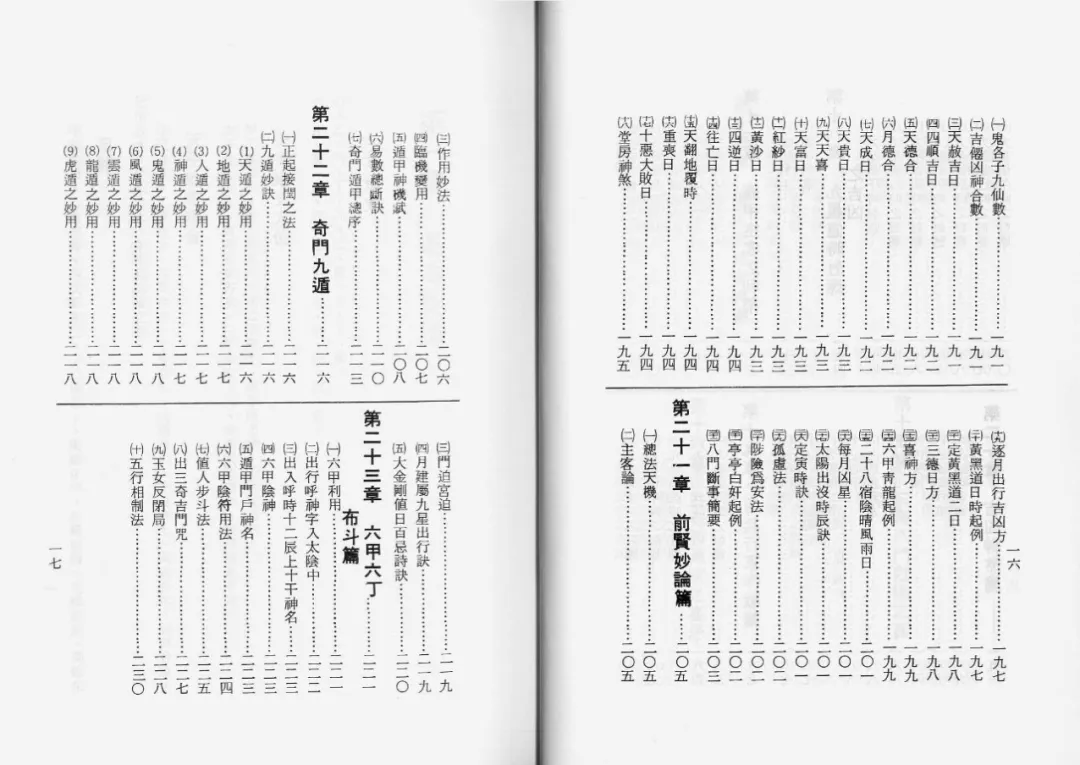 ㈠鬼各子九仙數……一九一
㈡吉僊凶神合數……一九一
㈢天赦吉日……一九一
㈣四順吉日……一九二
㈤天德合……一九二
㈥月德合……一九二
㈦天成日……一九二
㈧天貴日……一九三
㈨天天喜……一九三
㈩天富日……一九三
(十一)紅紗日……一九三
(十二)黃沙日……一九三
(十三)四逆日……一九四
(十四)往亡日……一九四
(十五)天翻地覆時……一九四
(十六)重喪日……一九四
(十七)十惡大敗日……一九四
(十八)堂房神煞……一九五
(十九)逐月出行吉凶方……一九七
(二十)黃黑道日時起例……一九七
定黃黑道二日……一九八
三德日方……一九八
喜神方……一九九
六甲青龍起例……一九九
二十八宿陰晴風雨日……二〇一
每月凶星……二〇一
太陽出沒時辰訣……二〇一
定寅時訣……二〇一
孤虛法……二〇二
陟險爲安法……二〇二
亭亭白奸起例……二〇二
八門斷事簡要……二〇三
第二十一章 前賢妙論篇……二〇五
㈠總法天機……二〇五
㈡主客論……二〇五
一六
㈢作用妙法……二〇六
㈣臨機變用……二〇七
㈤遁甲神機賦……二〇八
㈥易數總斷訣……二一〇
㈦奇門遁甲總序……二一三
第二十二章 奇門九遁……二一六
㈠正起接閏之法……二一六
㈡九遁妙訣……二一六
⑴天遁之妙用……二一六
⑵地遁之妙用……二一七
⑶人遁之妙用……二一七
⑷神遁之妙用……二一七
⑸鬼遁之妙用……二一八
⑹風遁之妙用……二一八
⑺雲遁之妙用……二一八
⑻龍遁之妙用……二一八
⑼虎遁之妙用……二一八
㈢門迫宮迫……二一九
㈣月建屬九星出行訣……二一九
㈤大金剛值日百忌詩訣……二二〇
第二十三章 六甲六丁……二二一
布斗篇
㈠六甲利用……二二一
㈡出行呼神字入太陰中……二二二
㈢出入呼時十二辰上十干神名……二二三
㈣六甲陰神……二二三
㈤遁甲門戶神名……二二三
㈥六甲陰符用法……二二四
㈦値人步斗法……二二五
㈧出三奇吉門咒……二二七
㈨玉女反閉局……二二八
㈩五行相制法……二三〇
一七